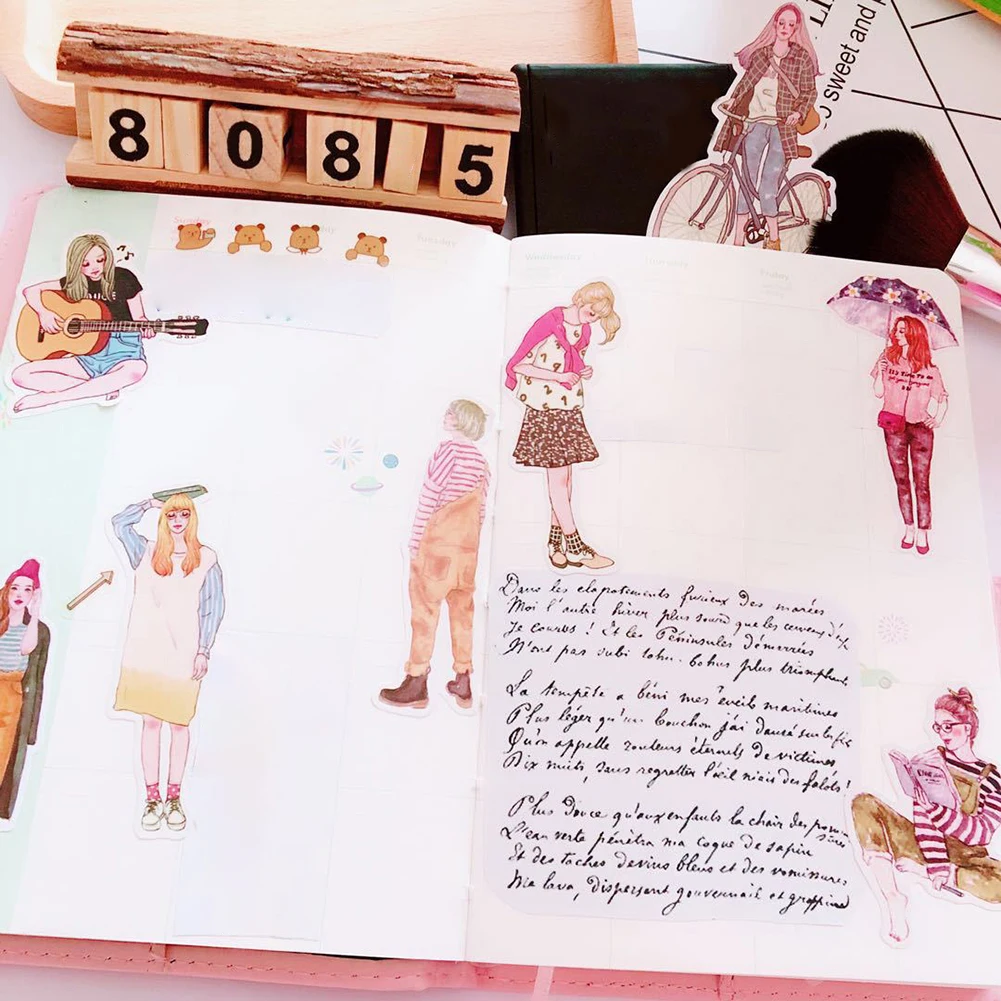 8 0 8 5
sweet and
Sunday
Tuesday
Wednesday
Friday
Dans les clapotements furieux des marées
Moi l'autre hiver plus sourd que les cerveaux
Je courus ! Et les Péninsules démarrées
N'ont pas subi tohu-bohus plus triomphant
La tempête a béni mes éveils maritimes
Plus léger qu'un bouchon j'ai dansé sur les
Qu'on appelle rouleurs éternels de victimes
Dix nuits, sans regretter l'œil niais des falots !
Plus douce qu'aux enfants la chair des pommes sûres
L'eau verte pénétra ma coque de sapin
Et des taches de vins bleus et des vomissures
Me lava, dispersant gouvernail et grappin